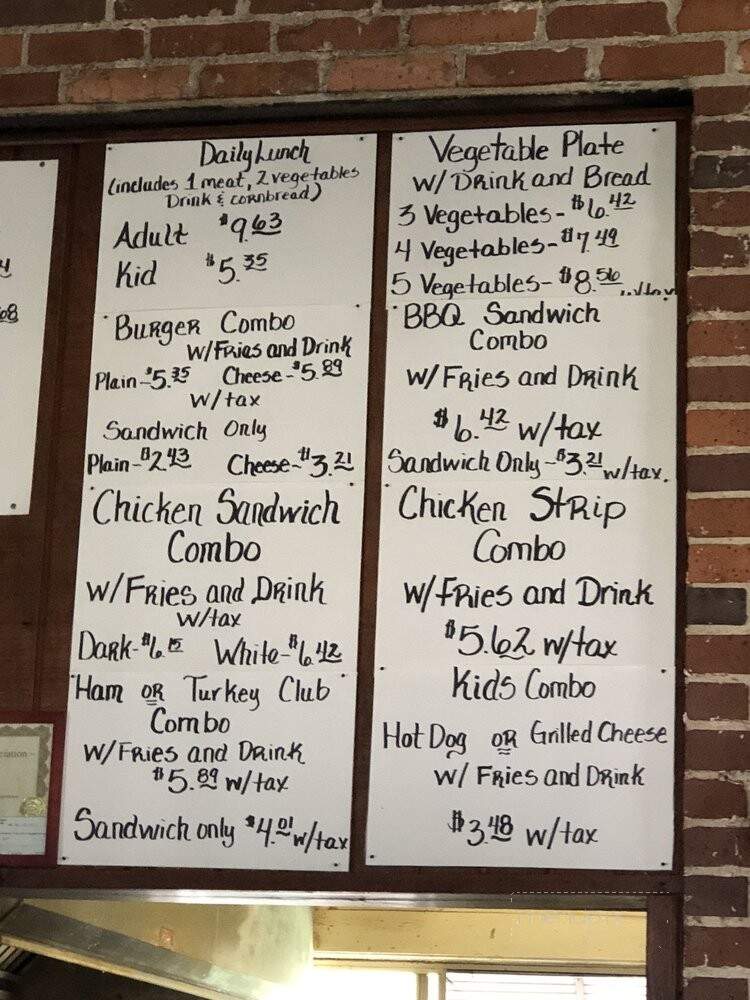 Daily Lunch
(includes 1 meat, 2 vegetables
Drink & cornbread)
Adult $9.63
Kid $5.35
Burger Combo
w/Fries and Drink
Plain-$5.35 Cheese-$5.89
w/tax
Sandwich Only
Plain-$2.43 Cheese-$3.21
Chicken Sandwich
Combo
w/Fries and Drink
w/tax
Dark-$6.15 White-$6.42
Ham or Turkey Club
Combo
w/Fries and Drink
$5.89 w/tax
Sandwich only $4.01 w/tax
Vegetable Plate
w/Drink and Bread
3 Vegetables-$6.42
4 Vegetables-$7.49
5 Vegetables-$8.56 w/tax
BBQ Sandwich
Combo
w/Fries and Drink
$6.42 w/tax
Sandwich Only-$3.21 w/tax.
Chicken Strip
Combo
w/Fries and Drink
$5.62 w/tax
Kids Combo
Hot Dog or Grilled Cheese
w/ Fries and Drink
$3.48 w/tax